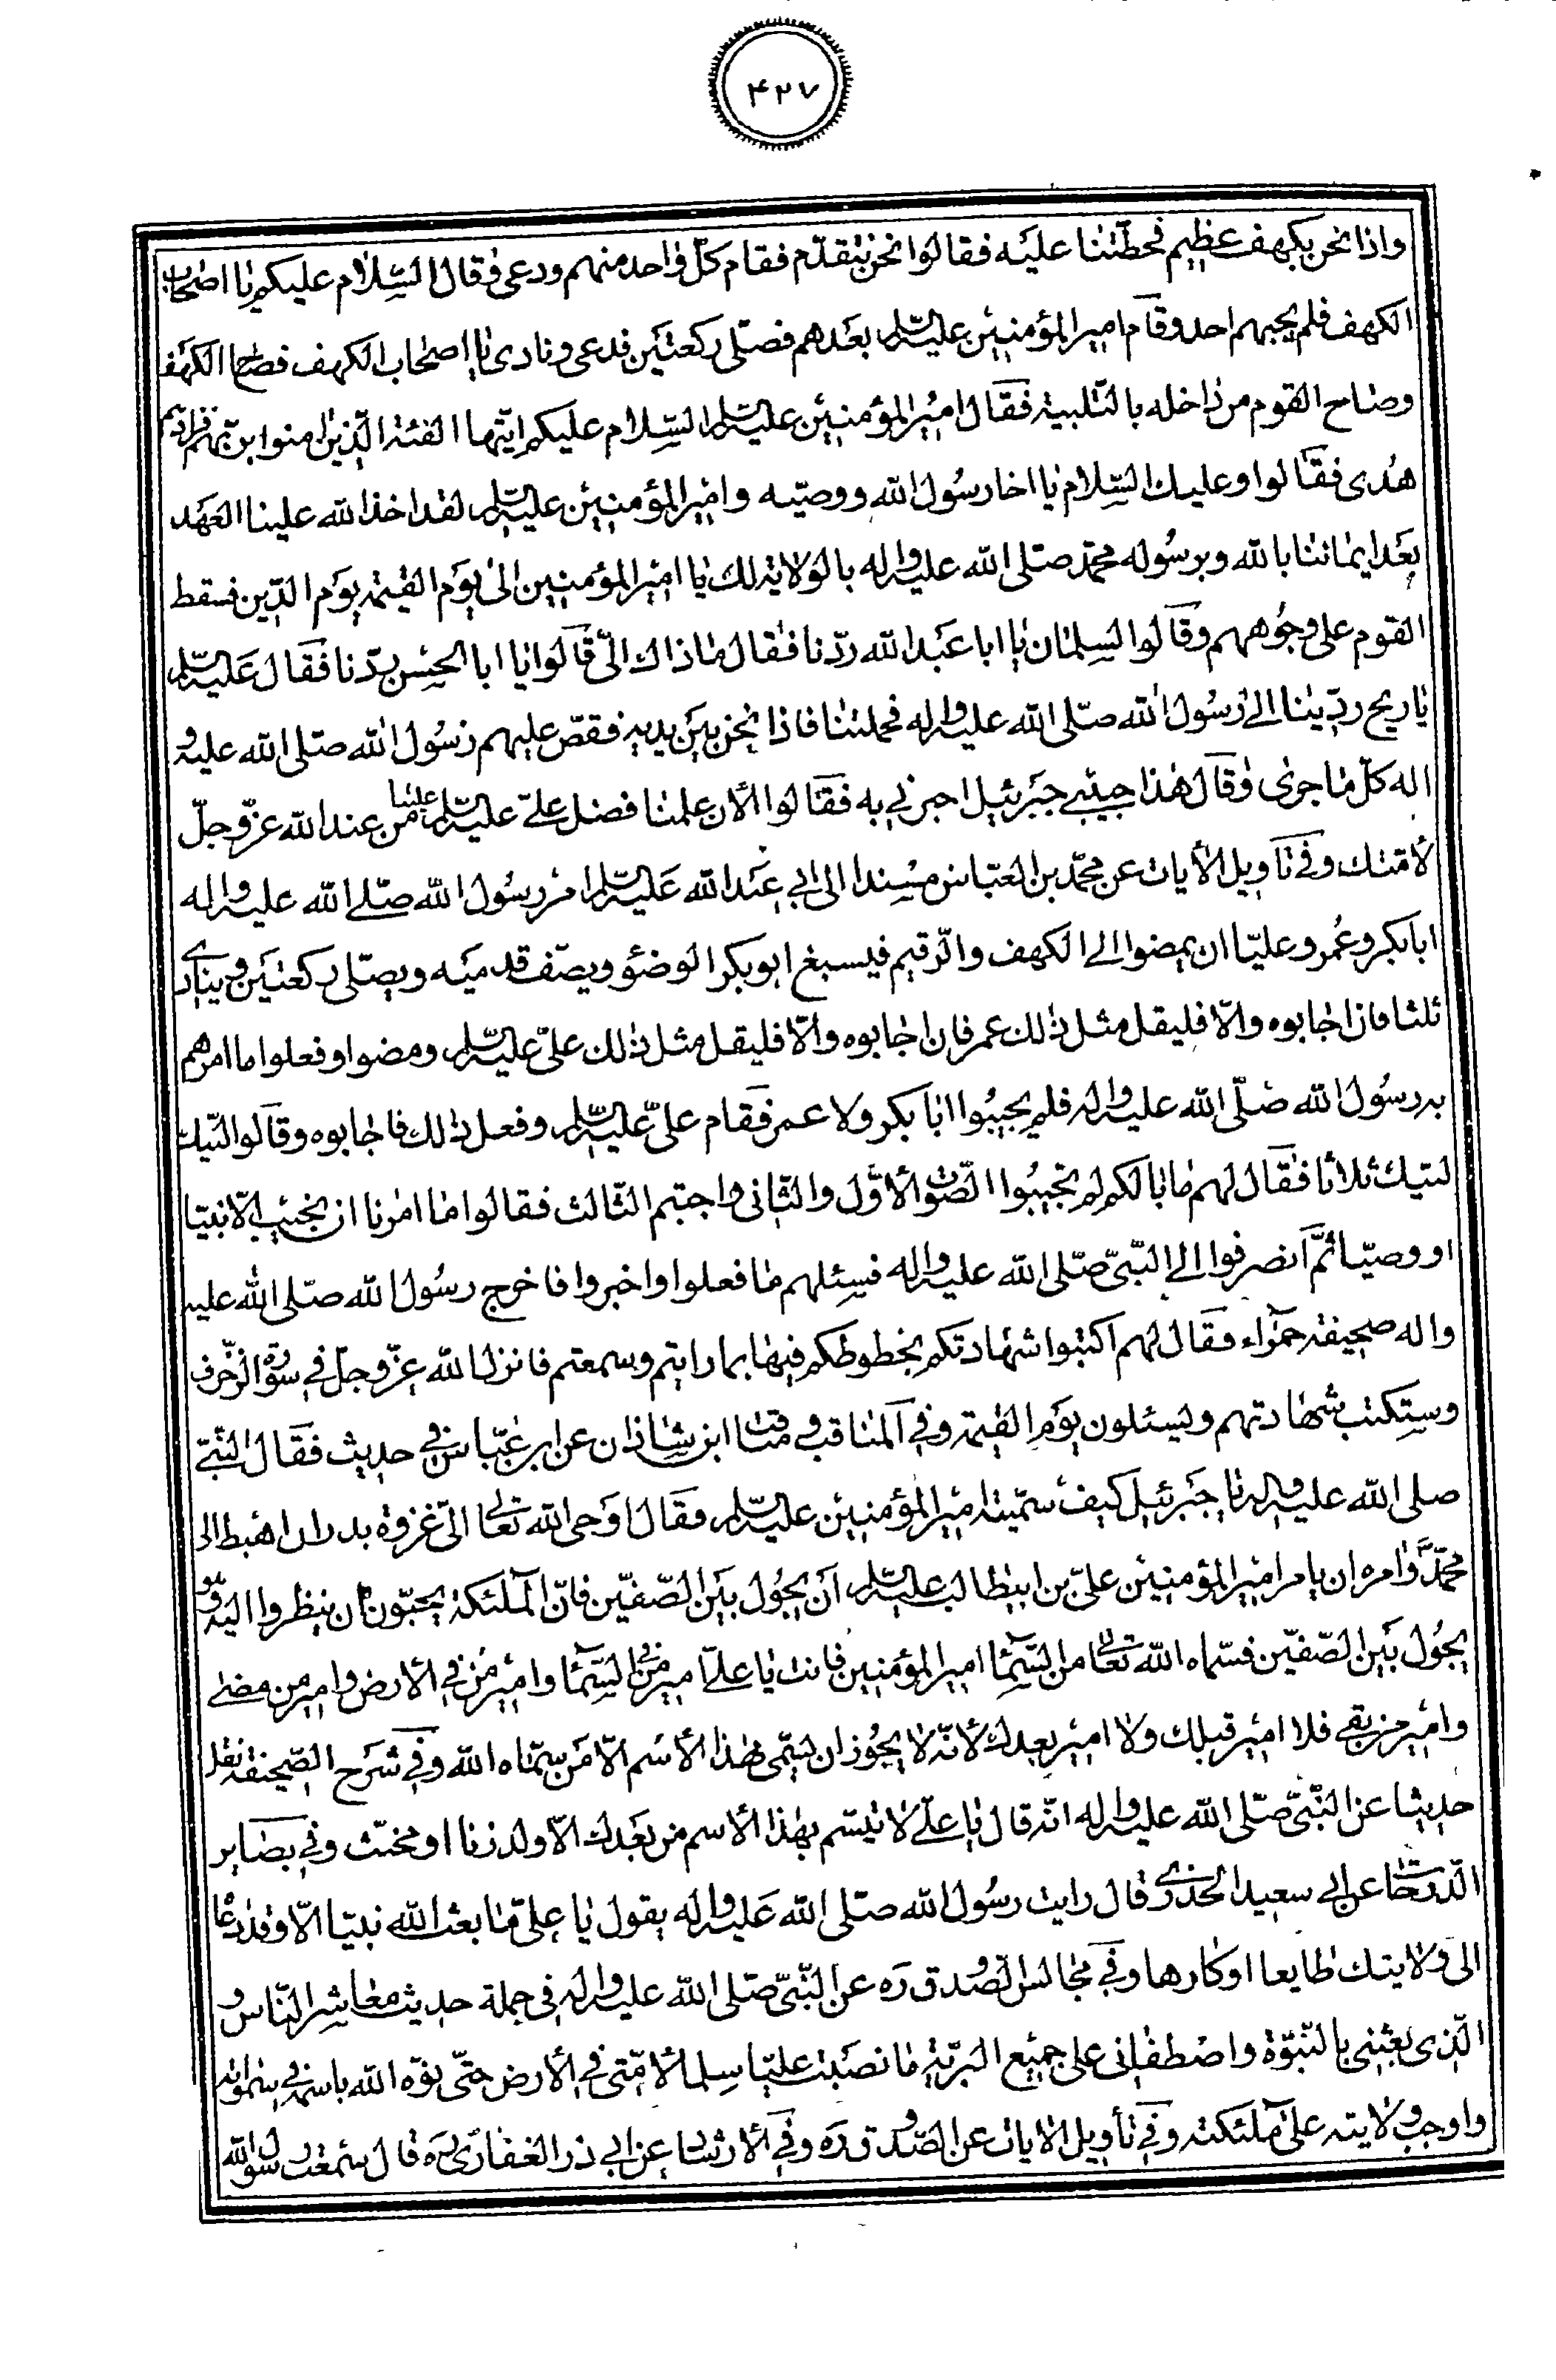 ۴۲۷
واذا نحن بكهف عظيم فحطتنا عليه فقالوا نحن نتقدم فقام كل واحد منهم ودعى وقال السلام عليكم يا اصحاب
الكهف فلم يجبهم احد وقام امير المؤمنين عليه السلم بعدهم فصلى ركعتين فدعى ونادى يا اصحاب الكهف فصاح الكهف
وصاح القوم من داخله بالتلبية فقال امير المؤمنين عليه السلم السلام عليكم ايتها الفئة الذين امنوا بربهم فزادهم
هدى فقالوا وعليك السلام يا اخا رسول الله ووصيه وامير المؤمنين عليه السلم لقد اخذ الله علينا العهد
بعد ايماننا بالله وبرسوله محمد صلى الله عليه واله بالولاية لك يا امير المؤمنين الى يوم القيمة يوم الدين فسقط
القوم على وجوههم وقالوا لسلمان يا ابا عبد الله ردنا فقال ما ذاك الى قالوا يا ابا الحسن ردنا فقال عليه السلم
يا ريح ردينا الى رسول الله صلى الله عليه واله فحملتنا فاذا نحن بين يديه فقص عليهم رسول الله صلى الله عليه و
اله كل ما جرى وقال هذا حبيبي جبرئيل اخبرني به فقالوا الأن علمنا فضل على عليه السلم علينا من عند الله عز وجل
لا منك وفي تاويل الأيات عن محمد بن العباس مسندا الى ابي عبد الله عليه السلم امر رسول الله صلى الله عليه واله
ابا بكر وعمر وعليا ان يمضوا الى الكهف والرقيم فيسبغ ابو بكر الوضؤ ويصف قدميه ويصلى ركعتين وينادى
ثلثا فان اجابوه والا فليقل مثل ذلك عمر فان اجابوه والا فليقل مثل ذلك على عليه السلم ومضوا وفعلوا ما امرهم
به رسول الله صلى الله عليه واله فلم يجيبوا ابا بكر ولا عمر فقام على عليه السلم وفعل ذلك فاجابوه وقالوا لبيك
لبيك ثلاثا فقال لهم ما بالكم لم تجيبوا الصوت الأول والثانى واجبتم الثالث فقالوا ما امرنا ان نجيب الا نبيا
او وصيا ثم انصرفوا الى النبى صلى الله عليه واله فسئلهم ما فعلوا واخبروا فاخرج رسول الله صلى الله عليه
واله صحيفة حمراء فقال لهم اكتبوا شهادتكم بخطوطكم فيها بما رايتم وسمعتم فانزل الله عز وجل في سورة الزخرف
وستكتب شهادتهم ويسئلون يوم القيمة وفي المناقب وفي مناقب ابن شاذان عن ابن عباس في حديث فقال النبي
صلى الله عليه واله يا جبرئيل كيف سميته امير المؤمنين عليه السلم فقال اوحى الله تعالى الى غزوة بدر ان اهبط الى
محمد وامره ان يامر امير المؤمنين على بن ابيطالب عليه السلم ان يجول بين الصفين فان الملئكة يحبون ان ينظروا اليه وهو
يجول بين الصفين فسماه الله تعالى من السماء امير المؤمنين فانت يا على امير من في السماء وامير من في الأرض وامير من مضى
وامير من بقى فلا امير قبلك ولا امير بعدك لأنه لا يجوز ان يسمى بهذا الأسم الا من سماه الله وفي شرح الصحيفة نقل
حديثا عن النبى صلى الله عليه واله انه قال يا على لا يتسم بهذا الأسم من بعدك الا ولد زنا او مخنث وفي بصاير
الدرجات عن ابي سعيد الخدرى قال رايت رسول الله صلى الله عليه واله يقول يا على ما بعث الله نبيا الا وقد دعا
الى ولايتك طايعا او كارها وفي مجالس الصدوق ره عن النبى صلى الله عليه واله في جملة حديث معاشر الناس و
الذى بعثنى بالنبوة واصطفانى على جميع البرية ما نصبت عليا سلما لامتى في الأرض حتى نوه الله باسمه في سمواته
واوجب ولايته على ملئكته وفي تأويل الايات عن الصدوق ره وفي الأرشاد عن ابي ذر الغفارى ره قال سمعت رسول الله